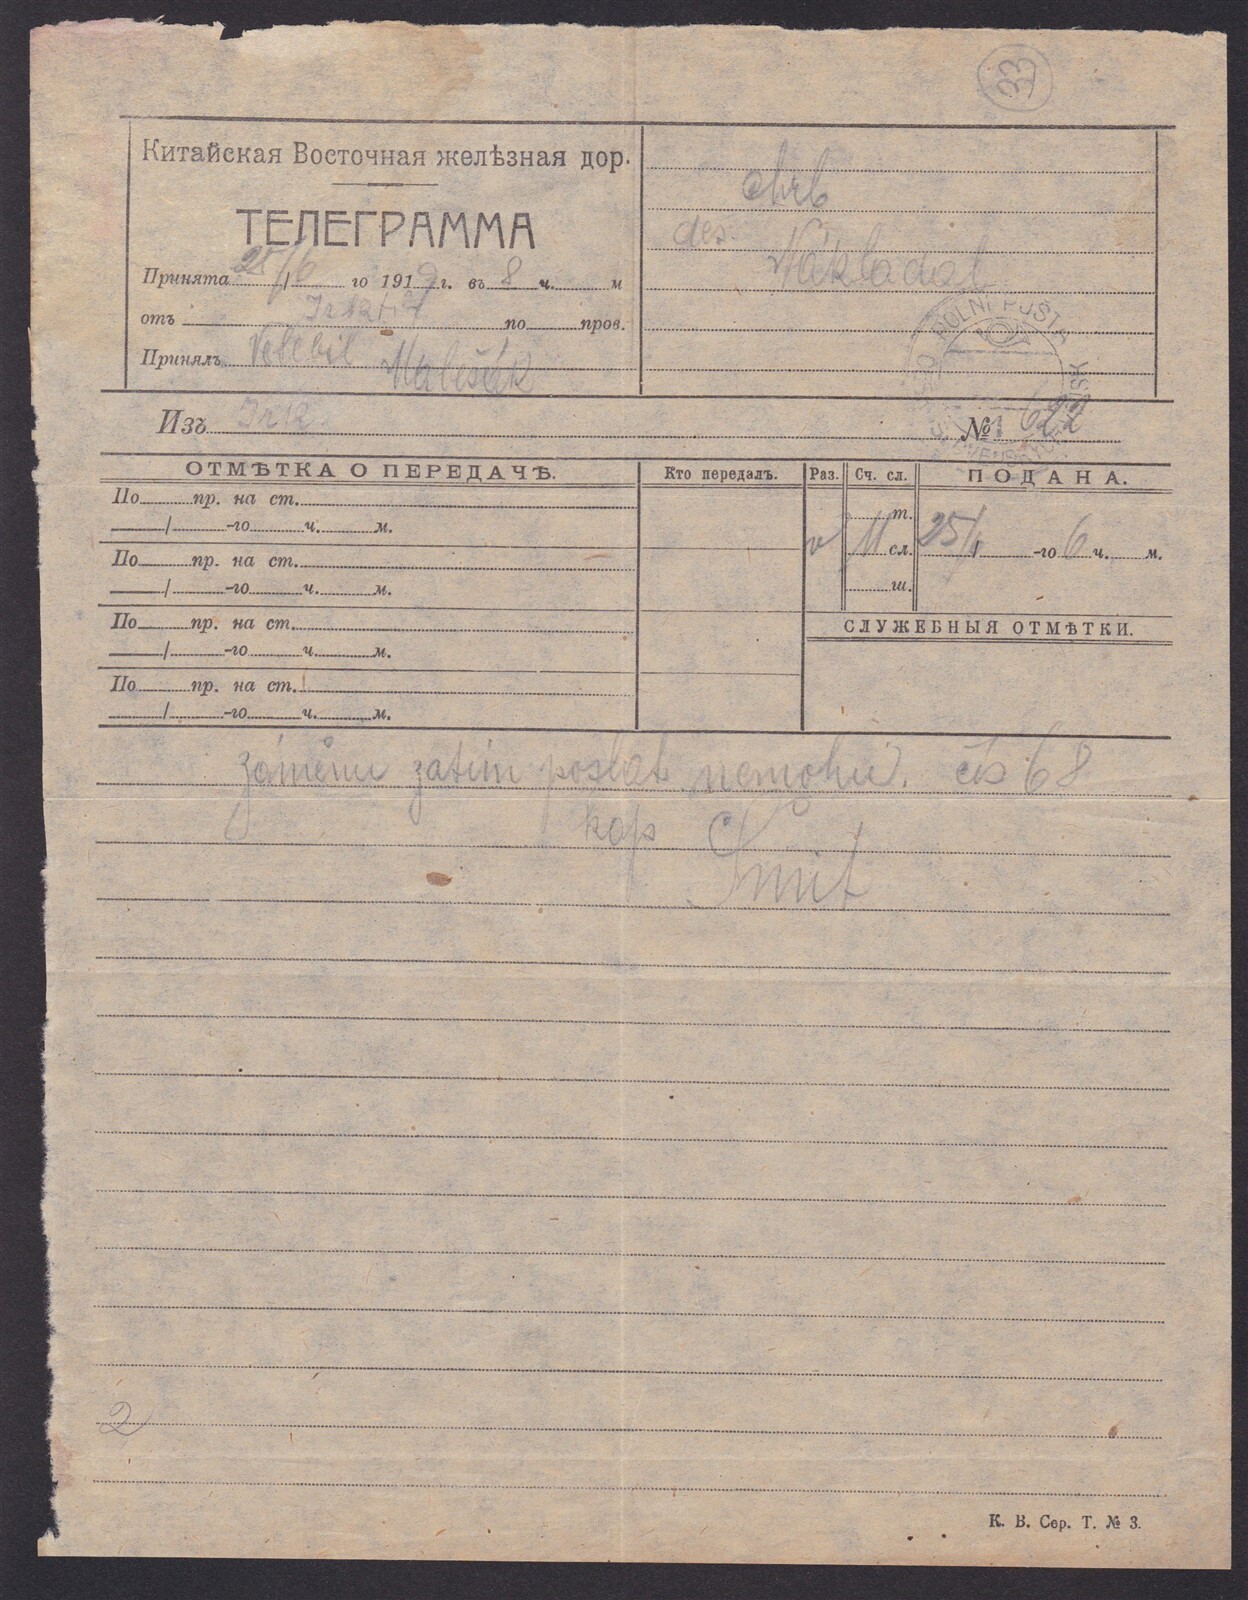 33
Китайская Восточная желѣзная дор.
ТЕЛЕГРАММА
Принята 25/6 го 1919 г. въ 8 ч. м
отъ по пров.
Принялъ
chrb
des. Nákladal
POLNÍ POŠTA
Изъ Irk. № 622
ОТМѢТКА О ПЕРЕДАЧѢ. Кто передалъ. Раз. Сч. сл. ПОДАНА.
По пр. на ст.
/ -го ч. м.
По пр. на ст.
/ -го ч. м.
По пр. на ст.
/ -го ч. м.
По пр. на ст.
/ -го ч. м.
т.
11 сл. 25/ -го 6 ч. м.
ш.
СЛУЖЕБНЫЯ ОТМѢТКИ.
záměnu zatím poslat nemohu. čís 68
kap Šmit
2
К. В. Сер. Т. № 3.